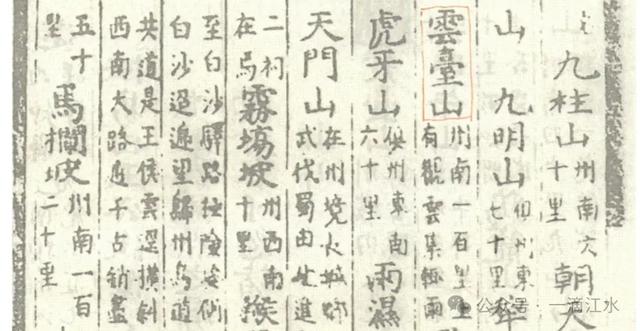 九柱山 州南六十里 朝
山 九明山 州東七十里
雲臺山 州南一百里 有觀雲集極雨
虎牙山 俱州東南六十里 雨濕
天門山 在州境 武伐蜀由此進
二祠在焉 霧塲坡 州西南十里 猴
至白沙驛路極險
白沙迢遞望歸州鳥道
共道是王侯雲逕橫斜
西南大路 千古銷盡
五十里 馬欄坡 州南一百二十里
公众号 · 一滴江水